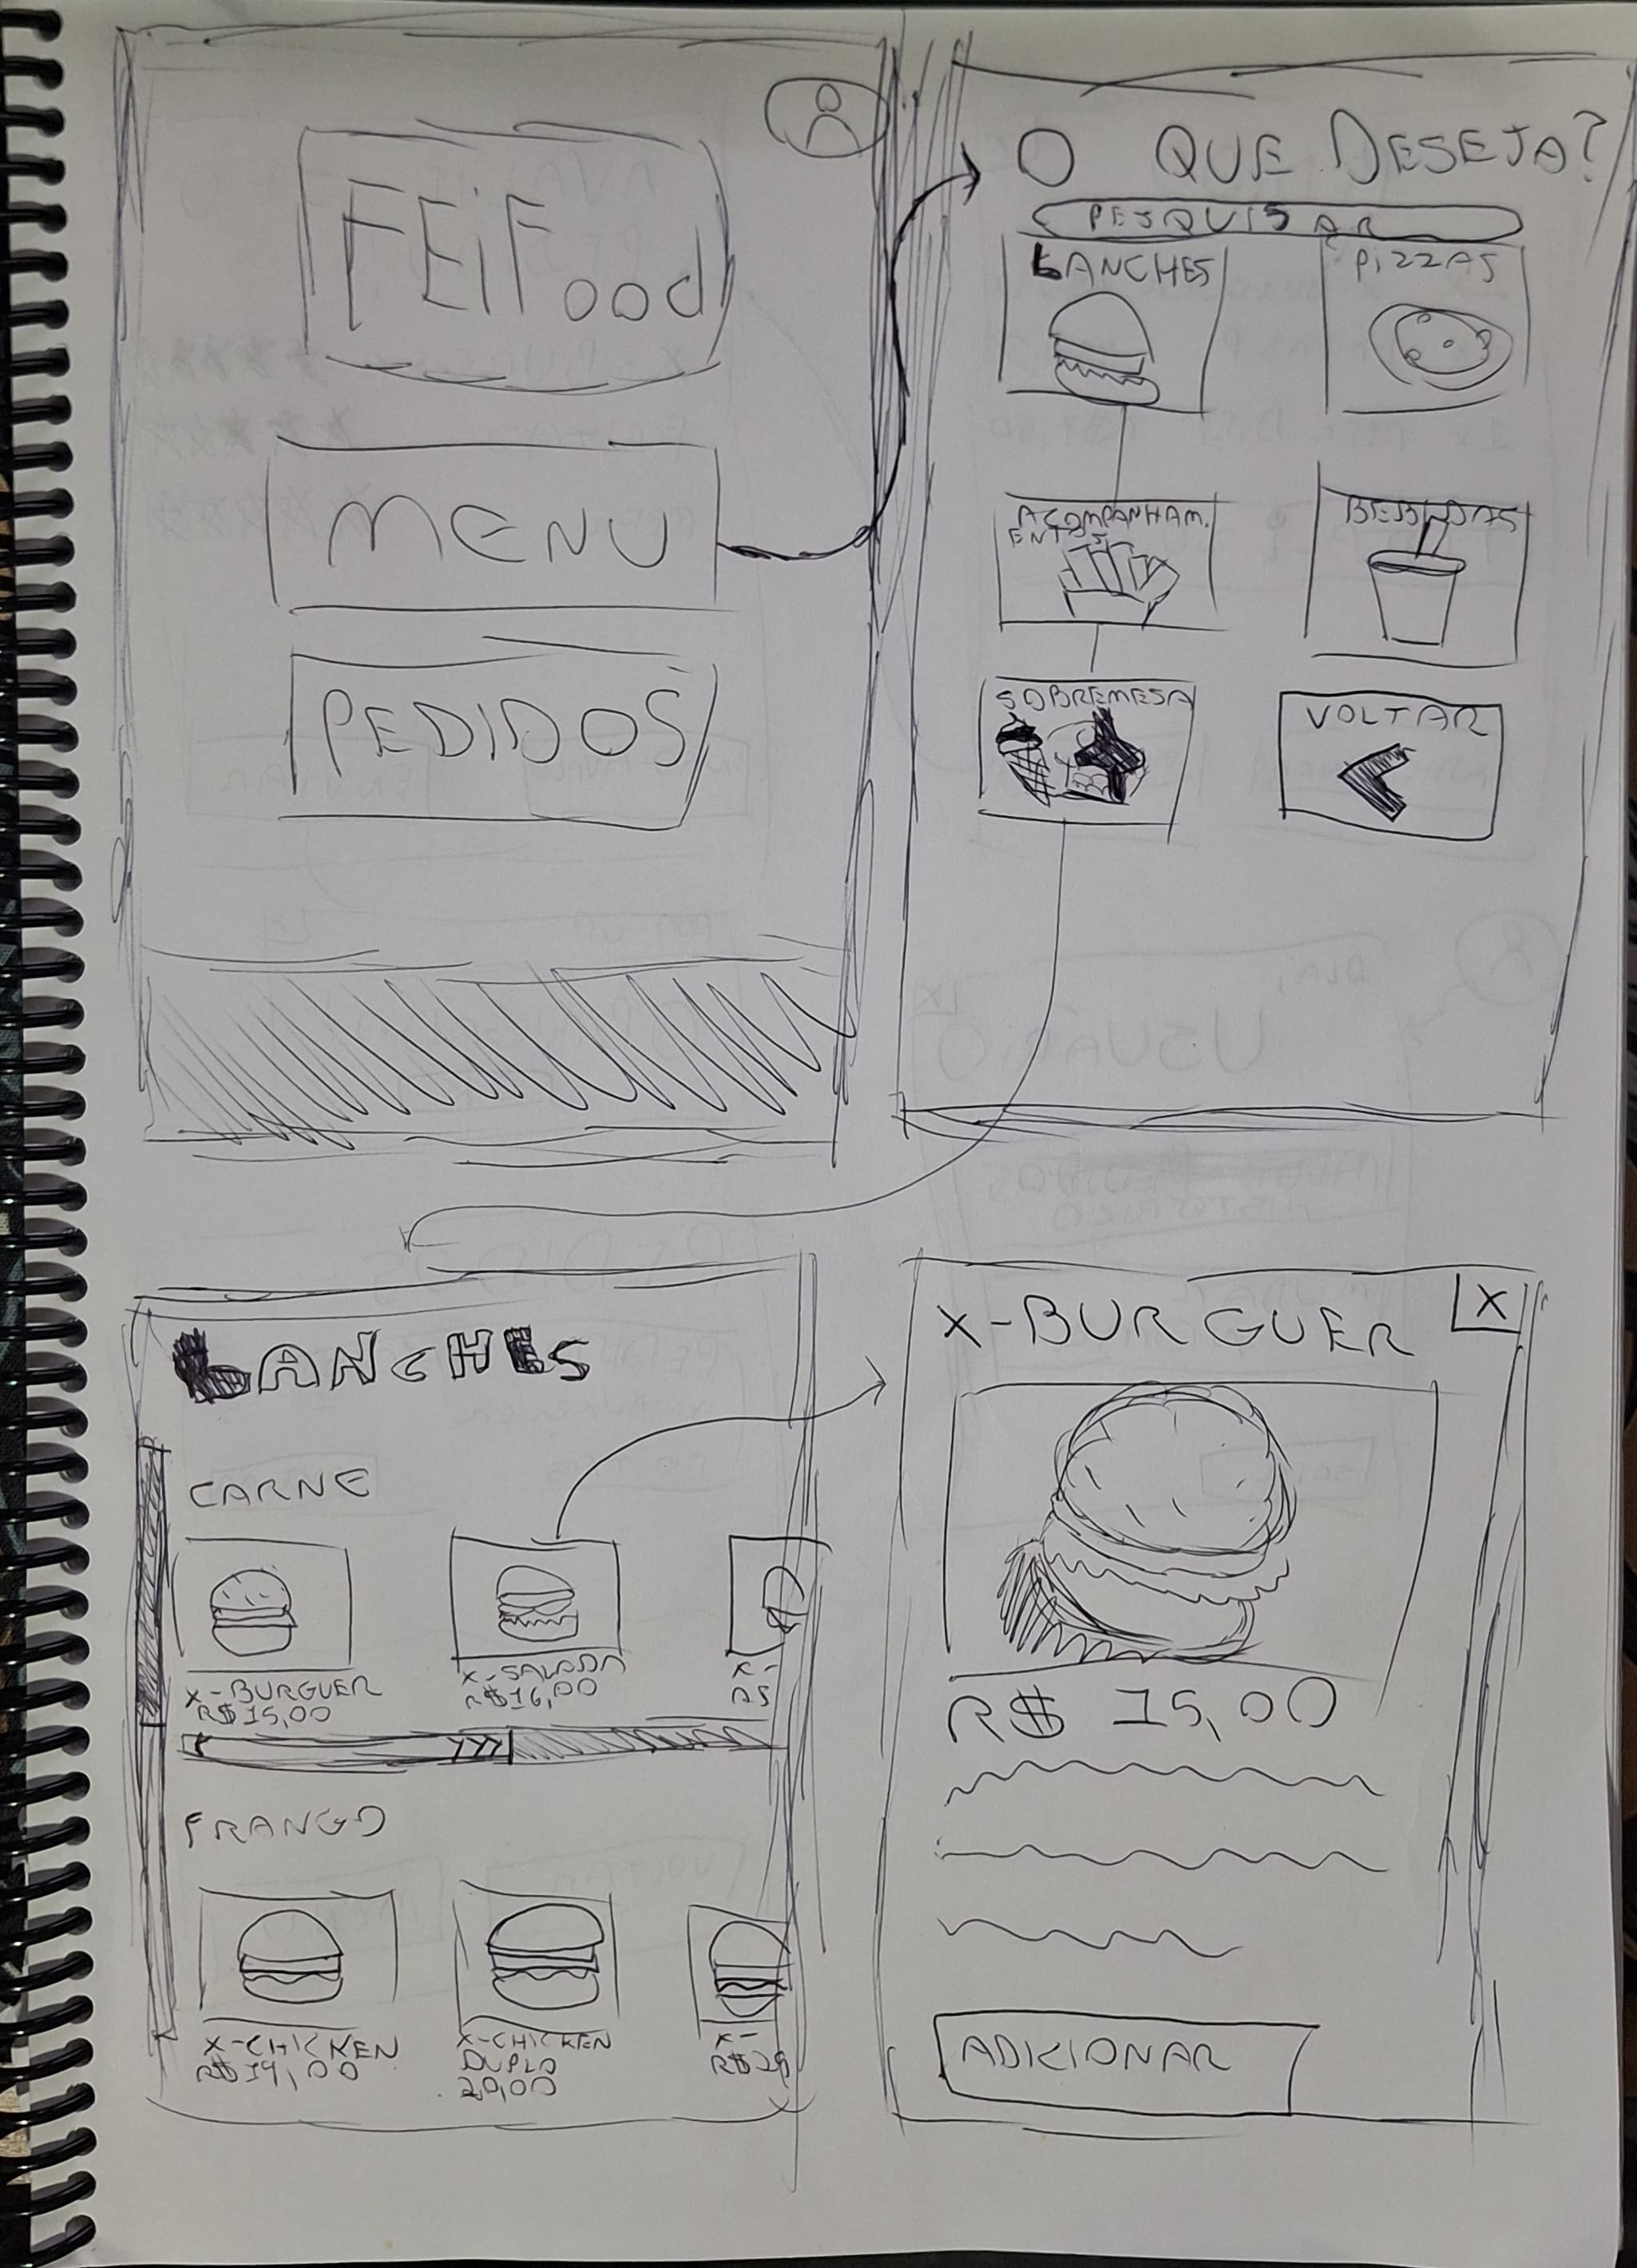 FEiFood
MENU
PEDIDOS
O QUE DESEJA?
PESQUISAR
LANCHES
PIZZAS
ACOMPANHAM.
ENTOS
BEBIDAS
SOBREMESA
VOLTAR
LANCHES
CARNE
X-BURGUER
R$15,00
X-SALADA
R$16,00
X-
FRANGO
X-CHICKEN
R$19,00
X-CHICKEN
DUPLO
20,00
X-
R$29
X-BURGUER
X
R$ 15,00
ADICIONAR